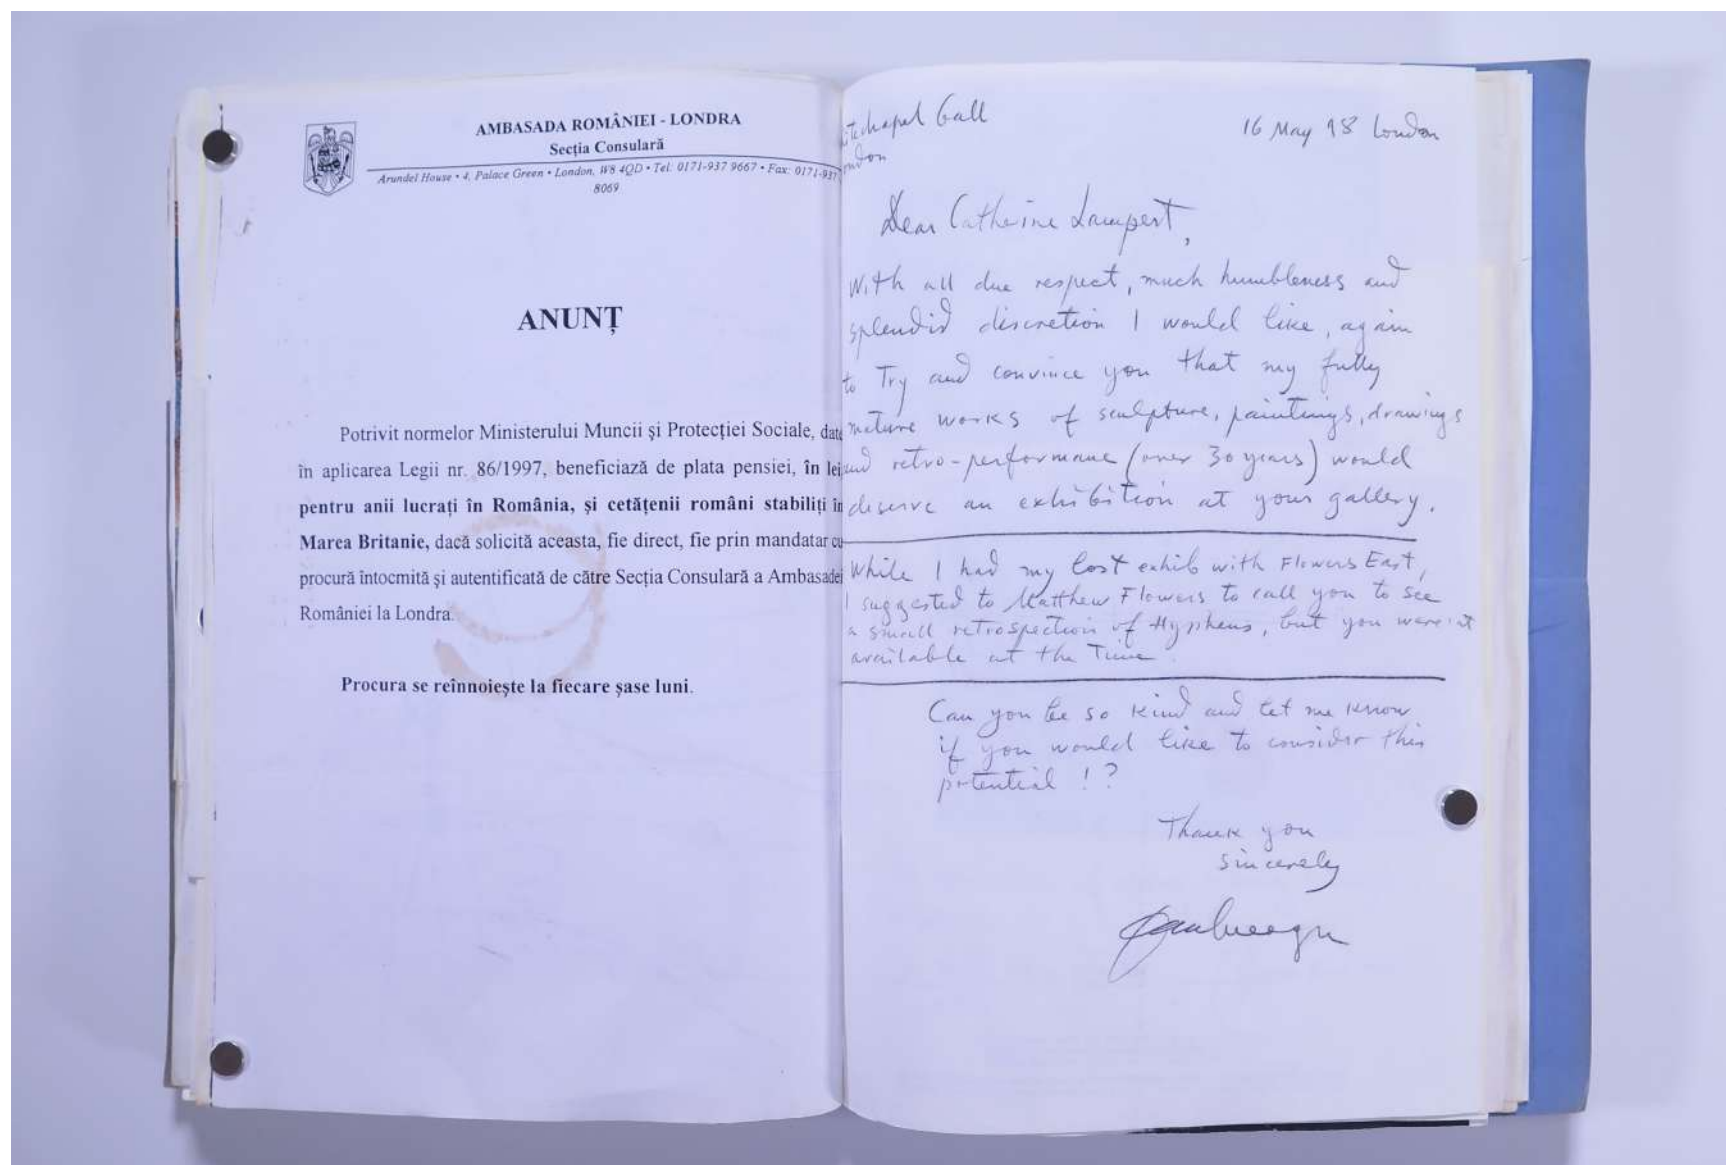 AMBASADA ROMÂNIEI - LONDRA
Secția Consulară
Arundel House • 4, Palace Green • London, W8 4QD • Tel: 0171-937 9667 • Fax: 0171-937
8069
ANUNȚ
Potrivit normelor Ministerului Muncii și Protecției Sociale, date
în aplicarea Legii nr. 86/1997, beneficiază de plata pensiei, în lei
pentru anii lucrați în România, și cetățenii români stabiliți în
Marea Britanie, dacă solicită aceasta, fie direct, fie prin mandatar cu
procură întocmită și autentificată de către Secția Consulară a Ambasadei
României la Londra.
Procura se reînnoiește la fiecare șase luni.
itechapel Gall
ondon
16 May 98 London
Dear Catherine Lampert,
With all due respect, much humbleness and
splendid discretion I would like, again
to Try and convince you that my fully
mature works of sculpture, paintings, drawings
and retro-performance (over 30 years) would
deserve an exhibition at your gallery.
While I had my last exhib with Flowers East,
I suggested to Matthew Flowers to call you to see
a small retrospection of Hyphens, but you weren't
available at the Time.
Can you be so kind and let me know
if you would like to consider this
potential !?
Thank you
sincerely